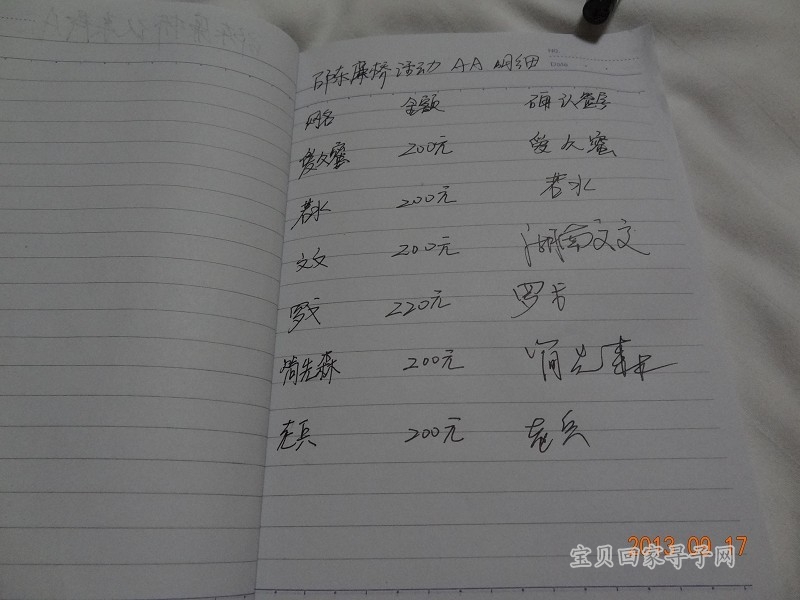 邵东廉桥活动AA明细
网名 金额 确认签字
爱久蜜 200元 爱久蜜
若水 200元 若水
文文 200元 湖南文文
罗卡 220元 罗卡
简先森 200元 简先森
老兵 200元 老兵
2013 09 17
宝贝回家寻子网